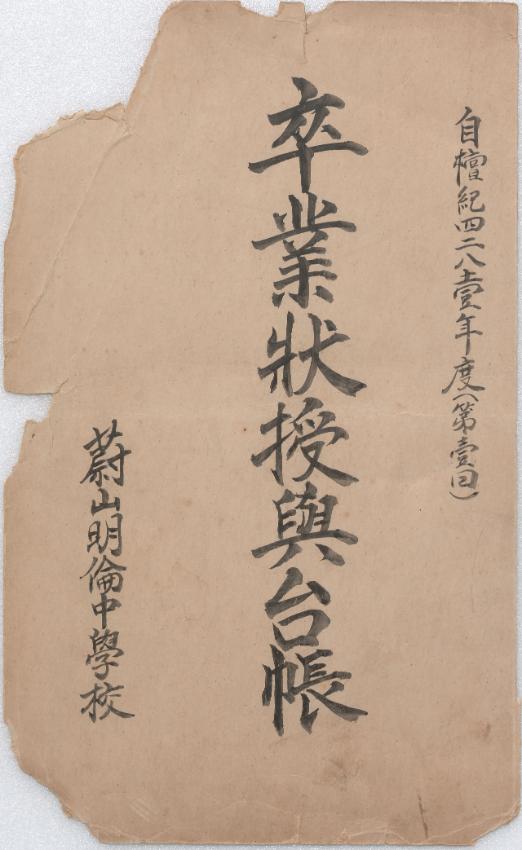 自檀紀四二八壹年度(第壹回)
卒業狀授與台帳
蔚山明倫中學校